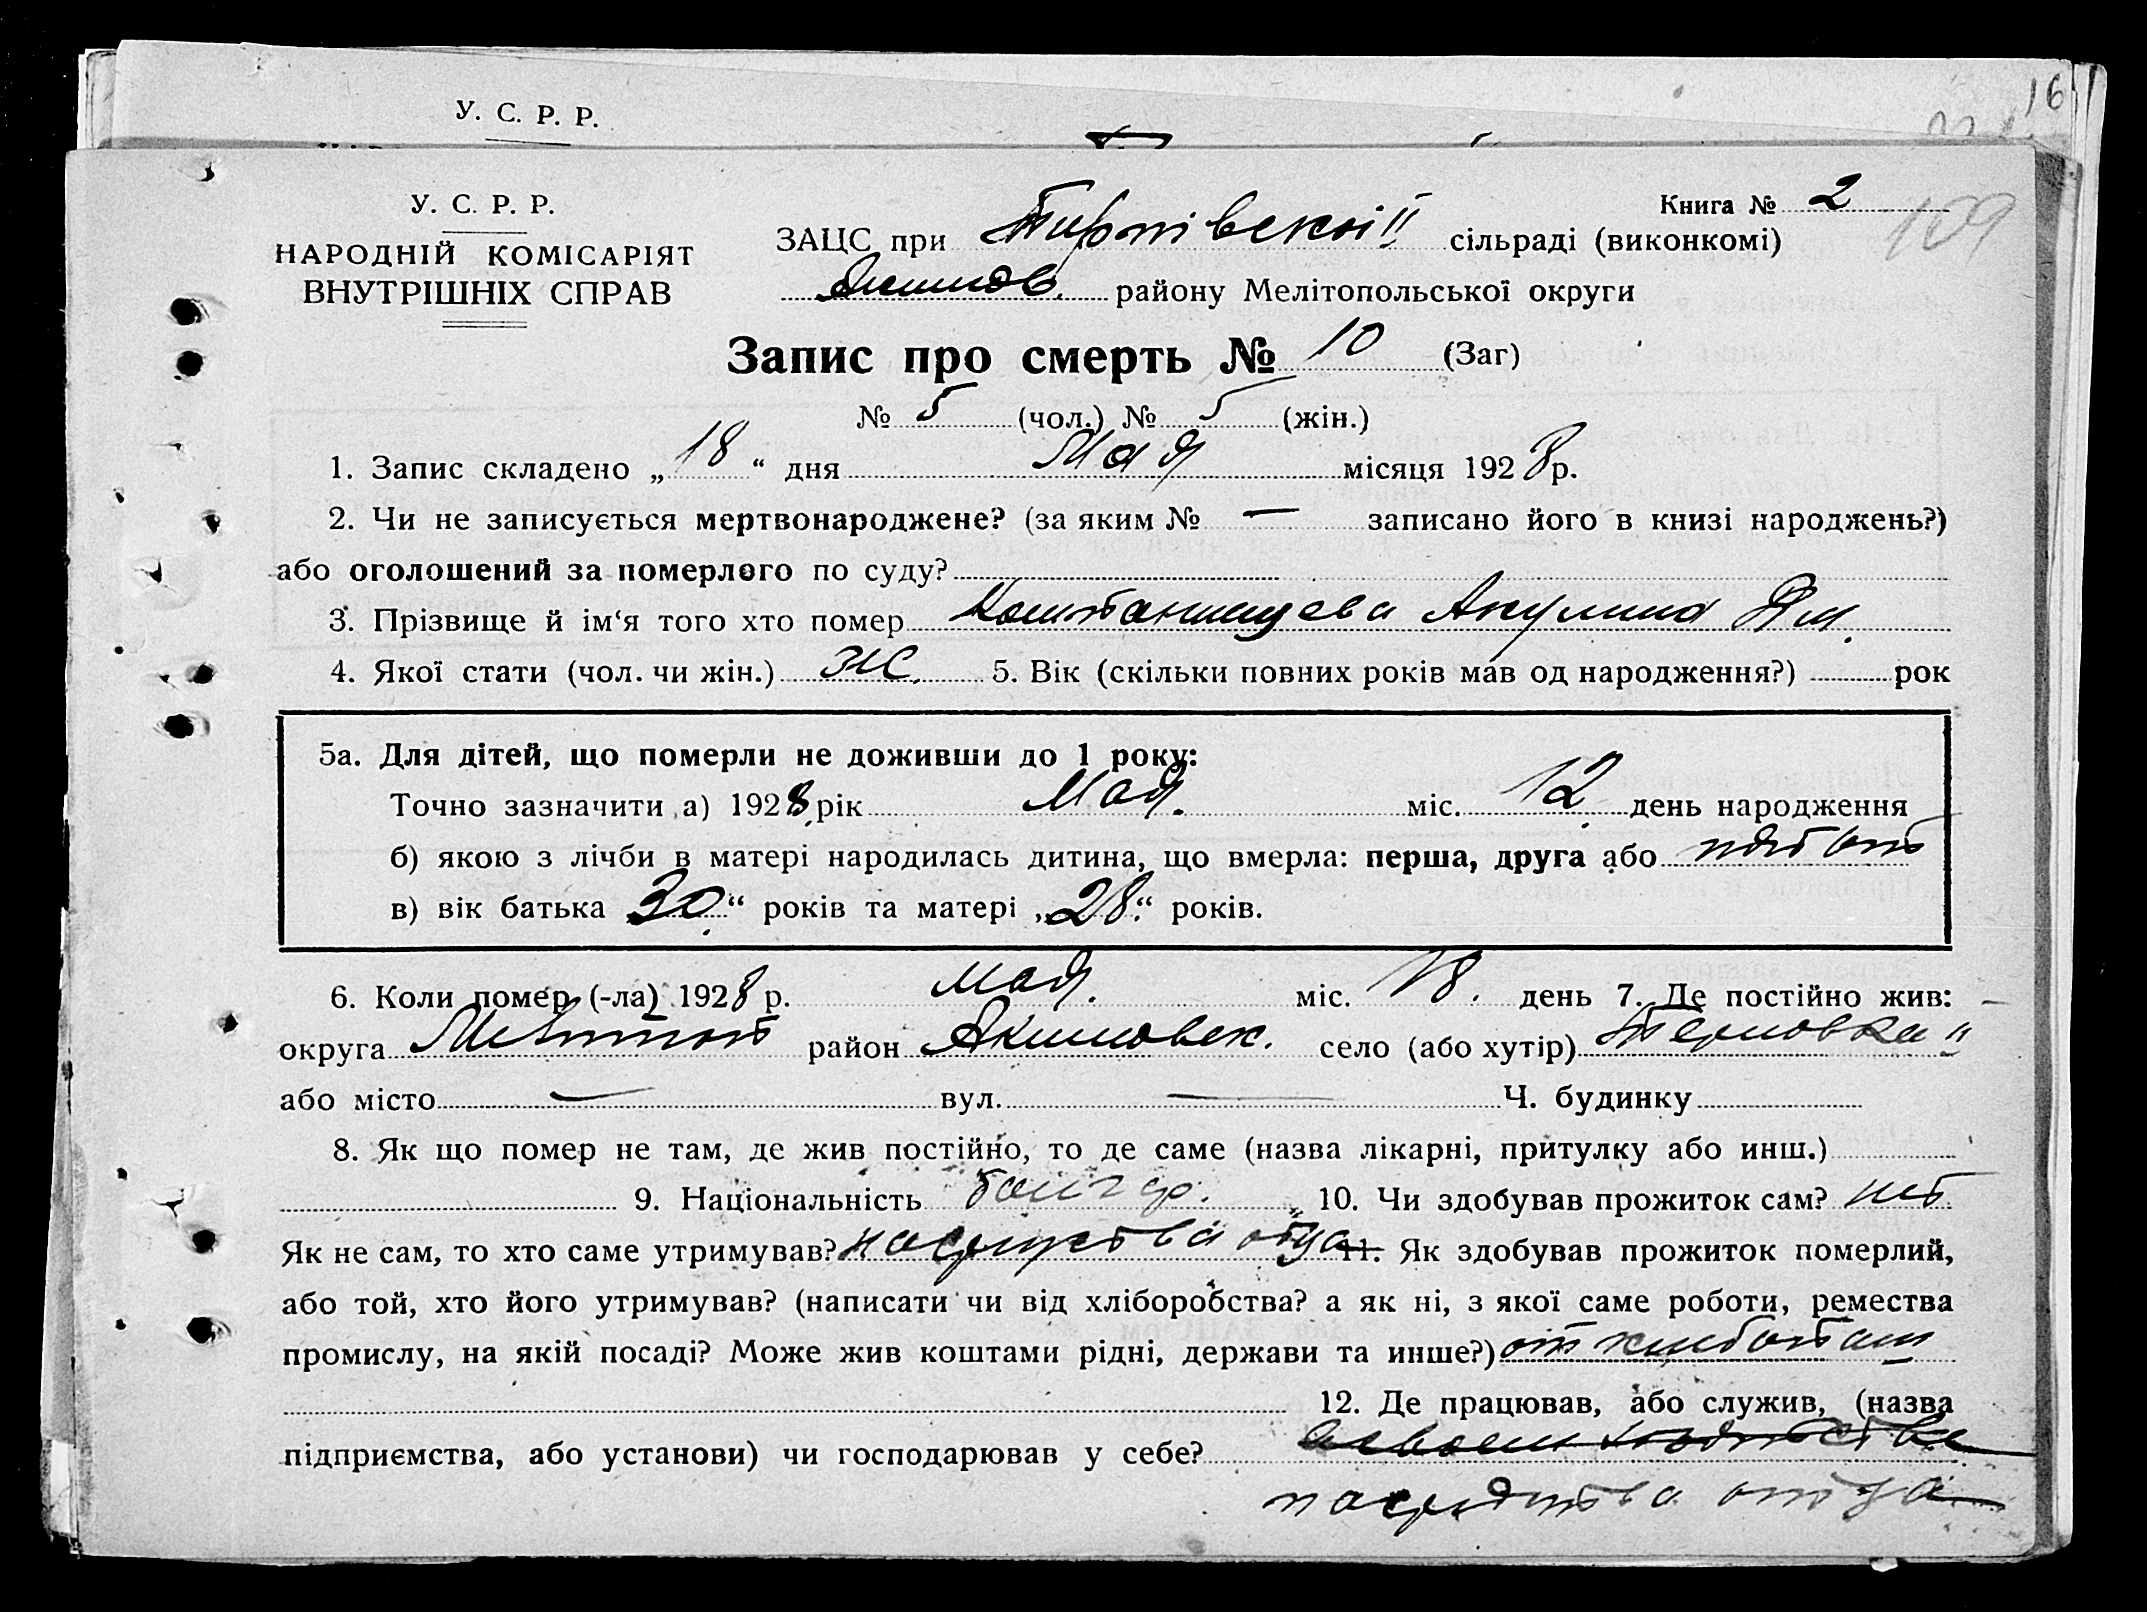 16
У. С. Р. Р.
У. С. Р. Р.
НАРОДНІЙ КОМІСАРІЯТ
ВНУТРІШНІХ СПРАВ
Книга № 2
109
ЗАЦС при сільраді (виконкомі)
Акимов. району Мелітопольської округи
Запис про смерть № 10 (Заг)
№ 5 (чол.) № 5 (жін.)
1. Запис складено „ 18 “ дня Мая місяця 1928 р.
2. Чи не записується мертвонароджене? (за яким № — записано його в книзі народжень?)
або оголошений за померлого по суду?
3. Прізвище й ім‘я того хто помер Акулина
4. Якої стати (чол. чи жін.) ж. 5. Вік (скільки повних років мав од народження?) рок
5а. Для дітей, що померли не доживши до 1 року:
Точно зазначити а) 1928 рік Мая. міс. 12 день народження
б) якою з лічби в матері народилась дитина, що вмерла: перша, друга або
в) вік батька „30“ років та матері „28“ років.
6. Коли помер (-ла) 1928 р. мая. міс. 18. день 7. Де постійно жив:
округа район Акимовск. село (або хутір)
або місто — вул. — Ч. будинку
8. Як що помер не там, де жив постійно, то де саме (назва лікарні, притулку або инш.)
9. Національність болгар. 10. Чи здобував прожиток сам? нет
Як не сам, то хто саме утримував? на средства отца 11. Як здобував прожиток померлий,
або той, хто його утримував? (написати чи від хліборобства? а як ні, з якої саме роботи, ремества
промислу, на якій посаді? Може жив коштами рідні, держави та инше?) от
12. Де працював, або служив, (назва
підприємства, або установи) чи господарював у себе?
на средства отца